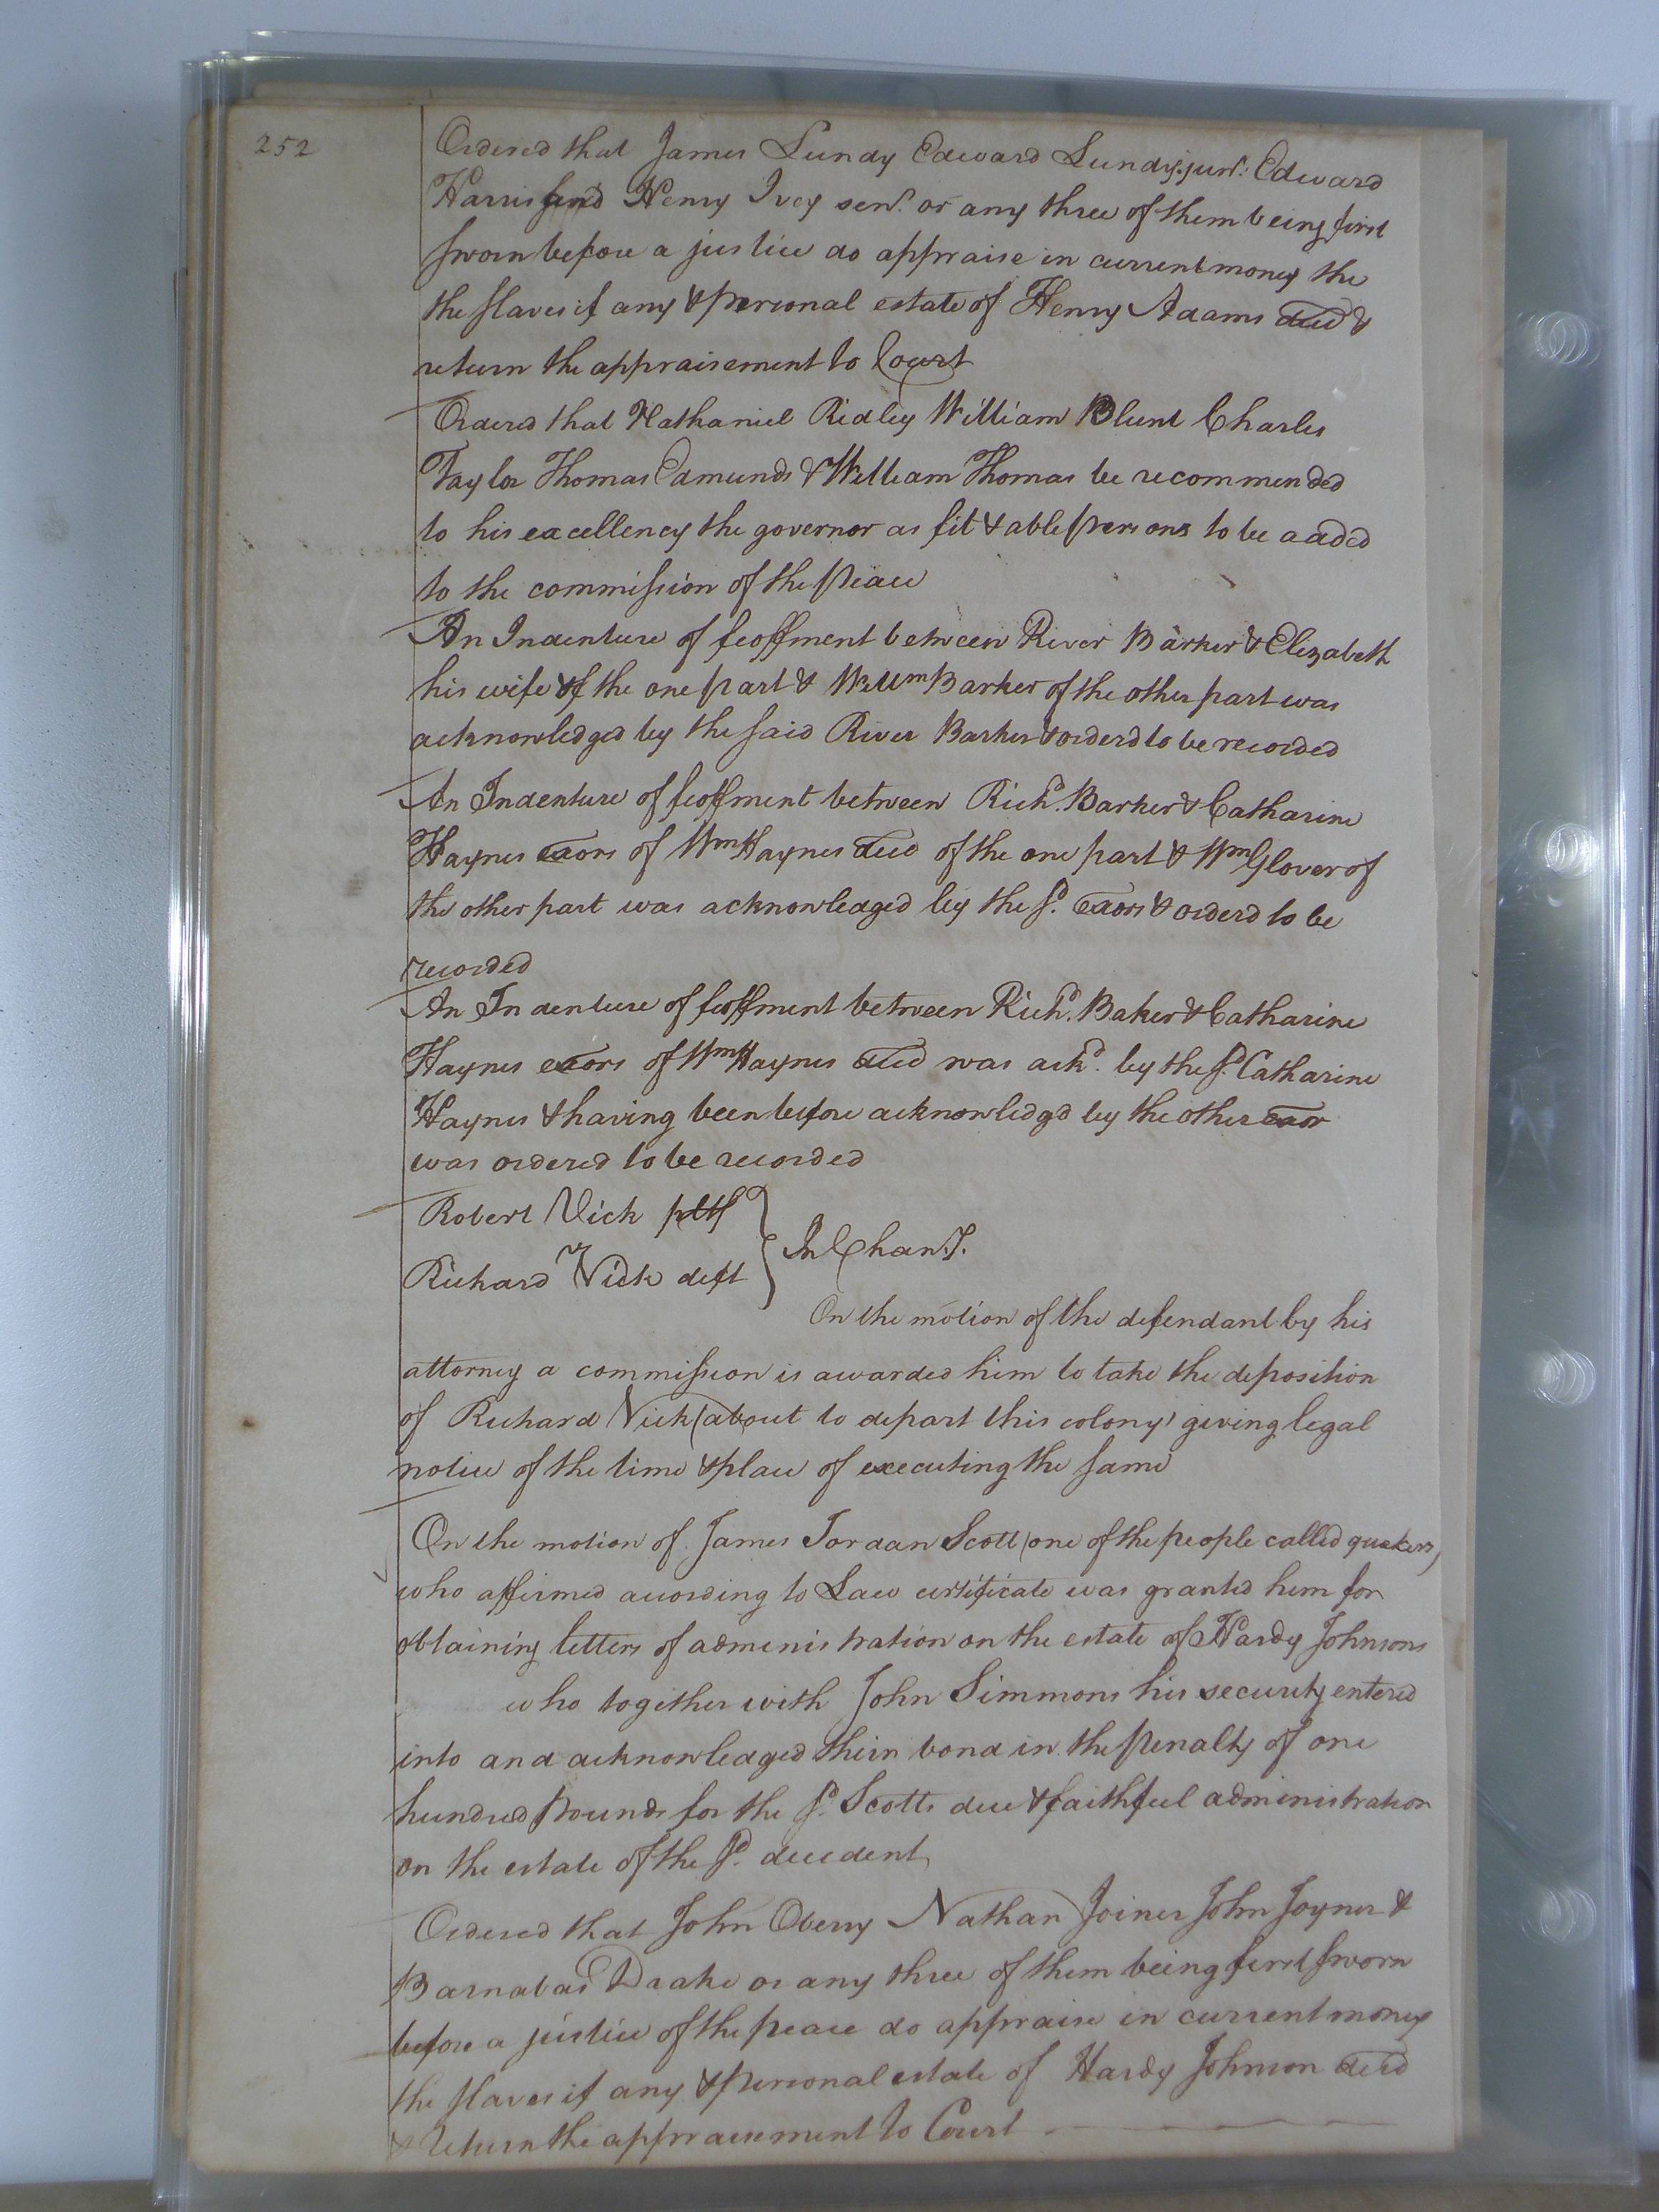 252
Ordered that James Lundy Edward Lundy junr: Edward
Harris and Henry Ivey senr. or any three of them being first
sworn before a justice do appraise in current money the
the slaves if any & personal estate of Henry Adams decd &
return the appraisement to Court
Ordered that Nathaniel Ridley William Blunt Charles
Taylor Thomas Edmunds & William Thomas be recommended
to his excellency the governor as fit & able persons to be added
to the commission of the peace
An Indenture of feoffment between River Barker & Elizabeth
his wife of the one part & Willm Barker of the other part was
acknowledged by the said River Barker & orderd to be recorded
An Indenture of feoffment between Richd. Barker & Catharine
Haynes exors of Wm Haynes decd of the one part & Wm Glover of
the other part was acknowledged by the sd. exors & orderd to be
recorded
An Indenture of feoffment between Richd. Baker & Catharine
Haynes exors of Wm Haynes decd was ackd. by the sd. Catharine
Haynes & having been before acknowledgd by the other exor
was ordered to be recorded
Robert Vick pltf
vs
Richard Vick deft
In Chany.
On the motion of the defendant by his
attorney a commission is awarded him to take the deposition
of Richard Vick (about to depart this colony) giving legal
notice of the time & place of executing the same
On the motion of James Jordan Scott (one of the people called quakers)
who affirmed according to Law certificate was granted him for
obtaining letters of administration on the estate of Hardy Johnsons
who together with John Simmons his security entered
into and acknowledged their bond in the penalty of one
hundred pounds for the sd. Scotts due & faithful administration
on the estate of the sd. decedent
Ordered that John Oberry Nathan Joiner John Joyner &
Barnabas Drake or any three of them being first sworn
before a justice of the peace do appraise in current money
the slaves if any & personal estate of Hardy Johnson decd
& return the appraisement to Court